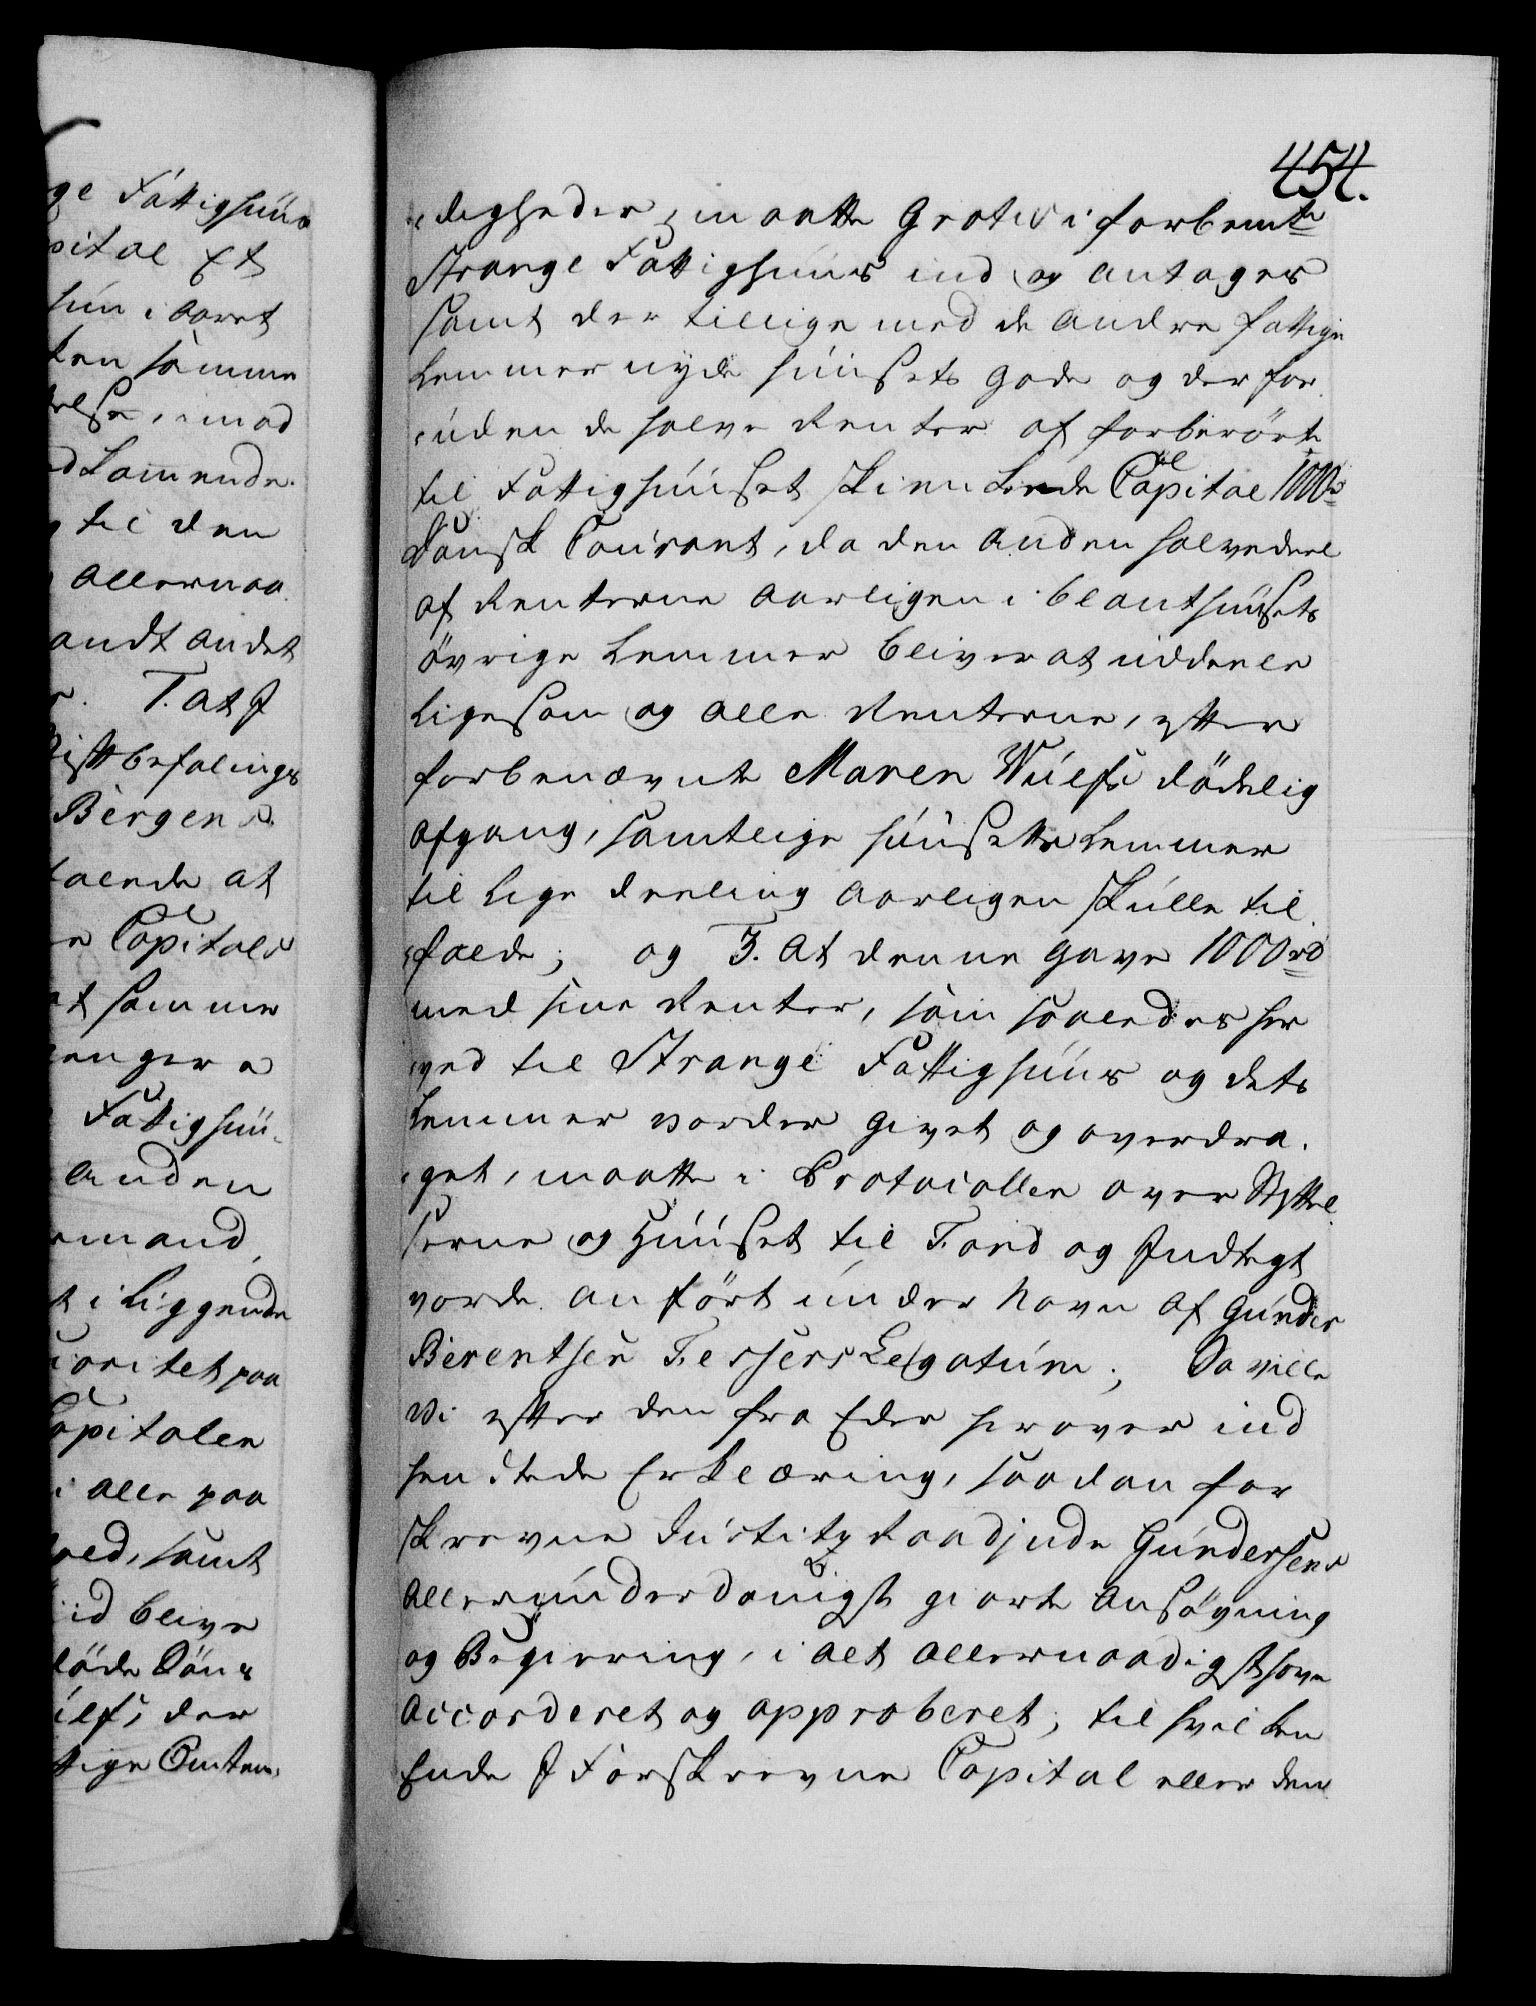 ge Fattighuus
pital Et
huu i Aaret
ken samme
else, imod
d Lommende
til den
allernaa
andt andet
T. at J
Stiftbefalings
Bergens
aende at
e Capitals
at samme
enger a
Fattighuu
anden
rmand
t i liggende
ioritet paa
Capitalen
i alle paa
ved, samt
iid blive
døde Søns
ulfs, der
ttige Omsten
454.
digheder, maatte Gratis i forbemte
Strange Fattighuus ind og antages
samt der tillige med de andre fattige
Lemmer nyde huusets gode og der for
uden de halve Renter af forberørte
til Fattighuuset skienkede Capital 1000 rd
Dansk Courant, da den anden halvedeel
af Renterne aarligen iblant huusets
øvrige Lemmer bliver at uddeele
Ligesom og alle Renterne, efter
forbenævnte Maren Wulfs dødelig
afgang, samtlige huusets Lemmer
til lige deeling aarligen skulle til
falde; og 3. At denne gave 1000 rd
med sine Renter, som saaledes her
ved til Strange Fattighuus og dets
Lemmer vorder givet og overdra
get, maatte i Protocollen over Styftel
serne og Huuset til Fond og Indtegt
vorde anført under Navn af Gunder
Berentsen Fessers Legatum; Da ville
Vi efter den fra Eder herover ind
hendtede Erklæring, saadan for
skrevne Justitz Raad Jude Gundersens
allerunderdanigst giorte Ansøgning
og Begiering, i alt allernaadigst have
accorderet og approberet, til hvilken
Ende J Forskrevne Capital eller den